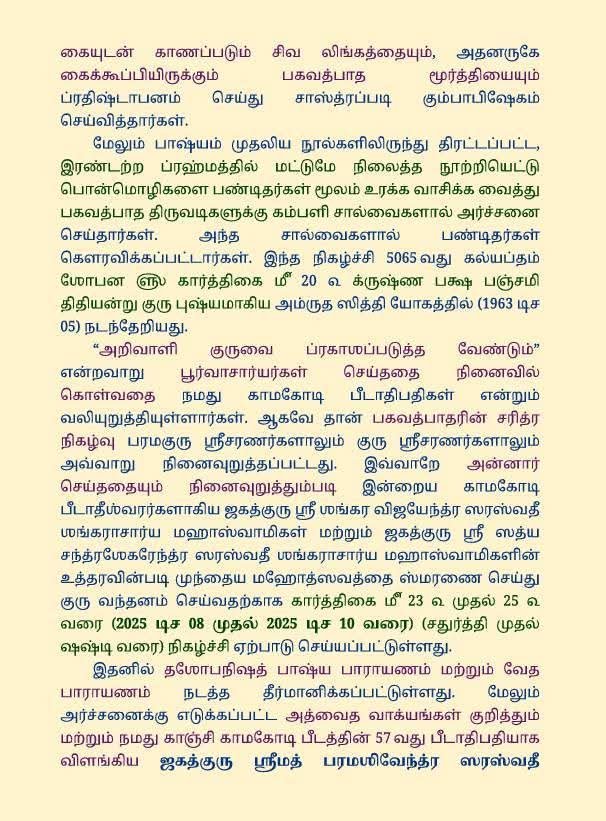 கையுடன் காணப்படும் சிவ லிங்கத்தையும், அதனருகே
கைக்கூப்பியிருக்கும் பகவத்பாத மூர்த்தியையும்
ப்ரதிஷ்டாபனம் செய்து சாஸ்த்ரப்படி கும்பாபிஷேகம்
செய்வித்தார்கள்.
மேலும் பாஷ்யம் முதலிய நூல்களிலிருந்து திரட்டப்பட்ட,
இரண்டற்ற ப்ரஹ்மத்தில் மட்டுமே நிலைத்த நூற்றியெட்டு
பொன்மொழிகளை பண்டிதர்கள் மூலம் உரக்க வாசிக்க வைத்து
பகவத்பாத திருவடிகளுக்கு கம்பளி சால்வைகளால் அர்ச்சனை
செய்தார்கள். அந்த சால்வைகளால் பண்டிதர்கள்
கௌரவிக்கப்பட்டார்கள். இந்த நிகழ்ச்சி 5065 வது கல்யப்தம்
ஶோபன ௵ கார்த்திகை ௴ 20 ௳ க்ருஷ்ண பக்ஷ பஞ்சமி
திதியன்று குரு புஷ்யமாகிய அம்ருத ஸித்தி யோகத்தில் (1963 டிச
05) நடந்தேறியது.
“அறிவாளி குருவை ப்ரகாஶப்படுத்த வேண்டும்”
என்றவாறு பூர்வாசார்யர்கள் செய்ததை நினைவில்
கொள்வதை நமது காமகோடி பீடாதிபதிகள் என்றும்
வலியுறுத்தியுள்ளார்கள். ஆகவே தான் பகவத்பாதரின் சரித்ர
நிகழ்வு பரமகுரு ஸ்ரீசரணர்களாலும் குரு ஸ்ரீசரணர்களாலும்
அவ்வாறு நினைவுறுத்தப்பட்டது. இவ்வாறே அன்னார்
செய்ததையும் நினைவுறுத்தும்படி இன்றைய காமகோடி
பீடாதீஶ்வரர்களாகிய ஜகத்குரு ஸ்ரீ ஶங்கர விஜயேந்த்ர ஸரஸ்வதீ
ஶங்கராசார்ய மஹாஸ்வாமிகள் மற்றும் ஜகத்குரு ஸ்ரீ ஸத்ய
சந்த்ரஶேகரேந்த்ர ஸரஸ்வதீ ஶங்கராசார்ய மஹாஸ்வாமிகளின்
உத்தரவின்படி முந்தைய மஹோத்ஸவத்தை ஸ்மரணை செய்து
குரு வந்தனம் செய்வதற்காக கார்த்திகை ௴ 23 ௳ முதல் 25 ௳
வரை (2025 டிச 08 முதல் 2025 டிச 10 வரை) (சதுர்த்தி முதல்
ஷஷ்டி வரை) நிகழ்ச்சி ஏற்பாடு செய்யப்பட்டுள்ளது.
இதனில் தஶோபநிஷத் பாஷ்ய பாராயணம் மற்றும் வேத
பாராயணம் நடத்த தீர்மானிக்கப்பட்டுள்ளது. மேலும்
அர்ச்சனைக்கு எடுக்கப்பட்ட அத்வைத வாக்யங்கள் குறித்தும்
மற்றும் நமது காஞ்சி காமகோடி பீடத்தின் 57 வது பீடாதிபதியாக
விளங்கிய ஜகத்குரு ஸ்ரீமத் பரமஶிவேந்த்ர ஸரஸ்வதீ